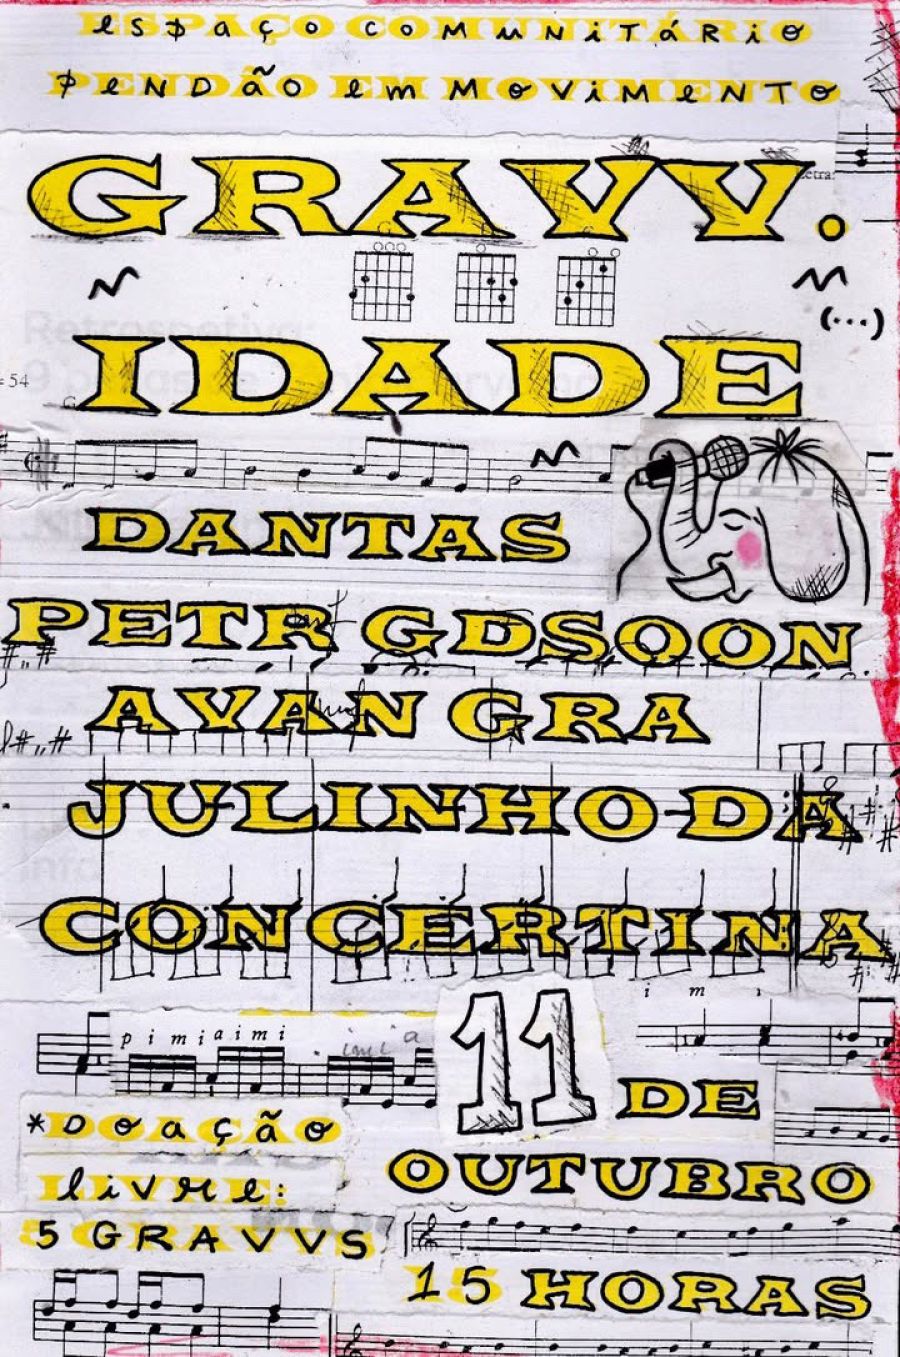 ESPAÇO COMUNITÁRIO
PENDÃO EM MOVIMENTO
GRAVV.
(...)
IDADE
= 54
DANTAS
PETR GDSOON
AVAN GRA
JULINHO DA
CONCERTINA
i m
p i m i a i m i
i m i a
11 DE
OUTUBRO
*DOAÇÃO
LIVRE:
5 GRAVVS
15 HORAS